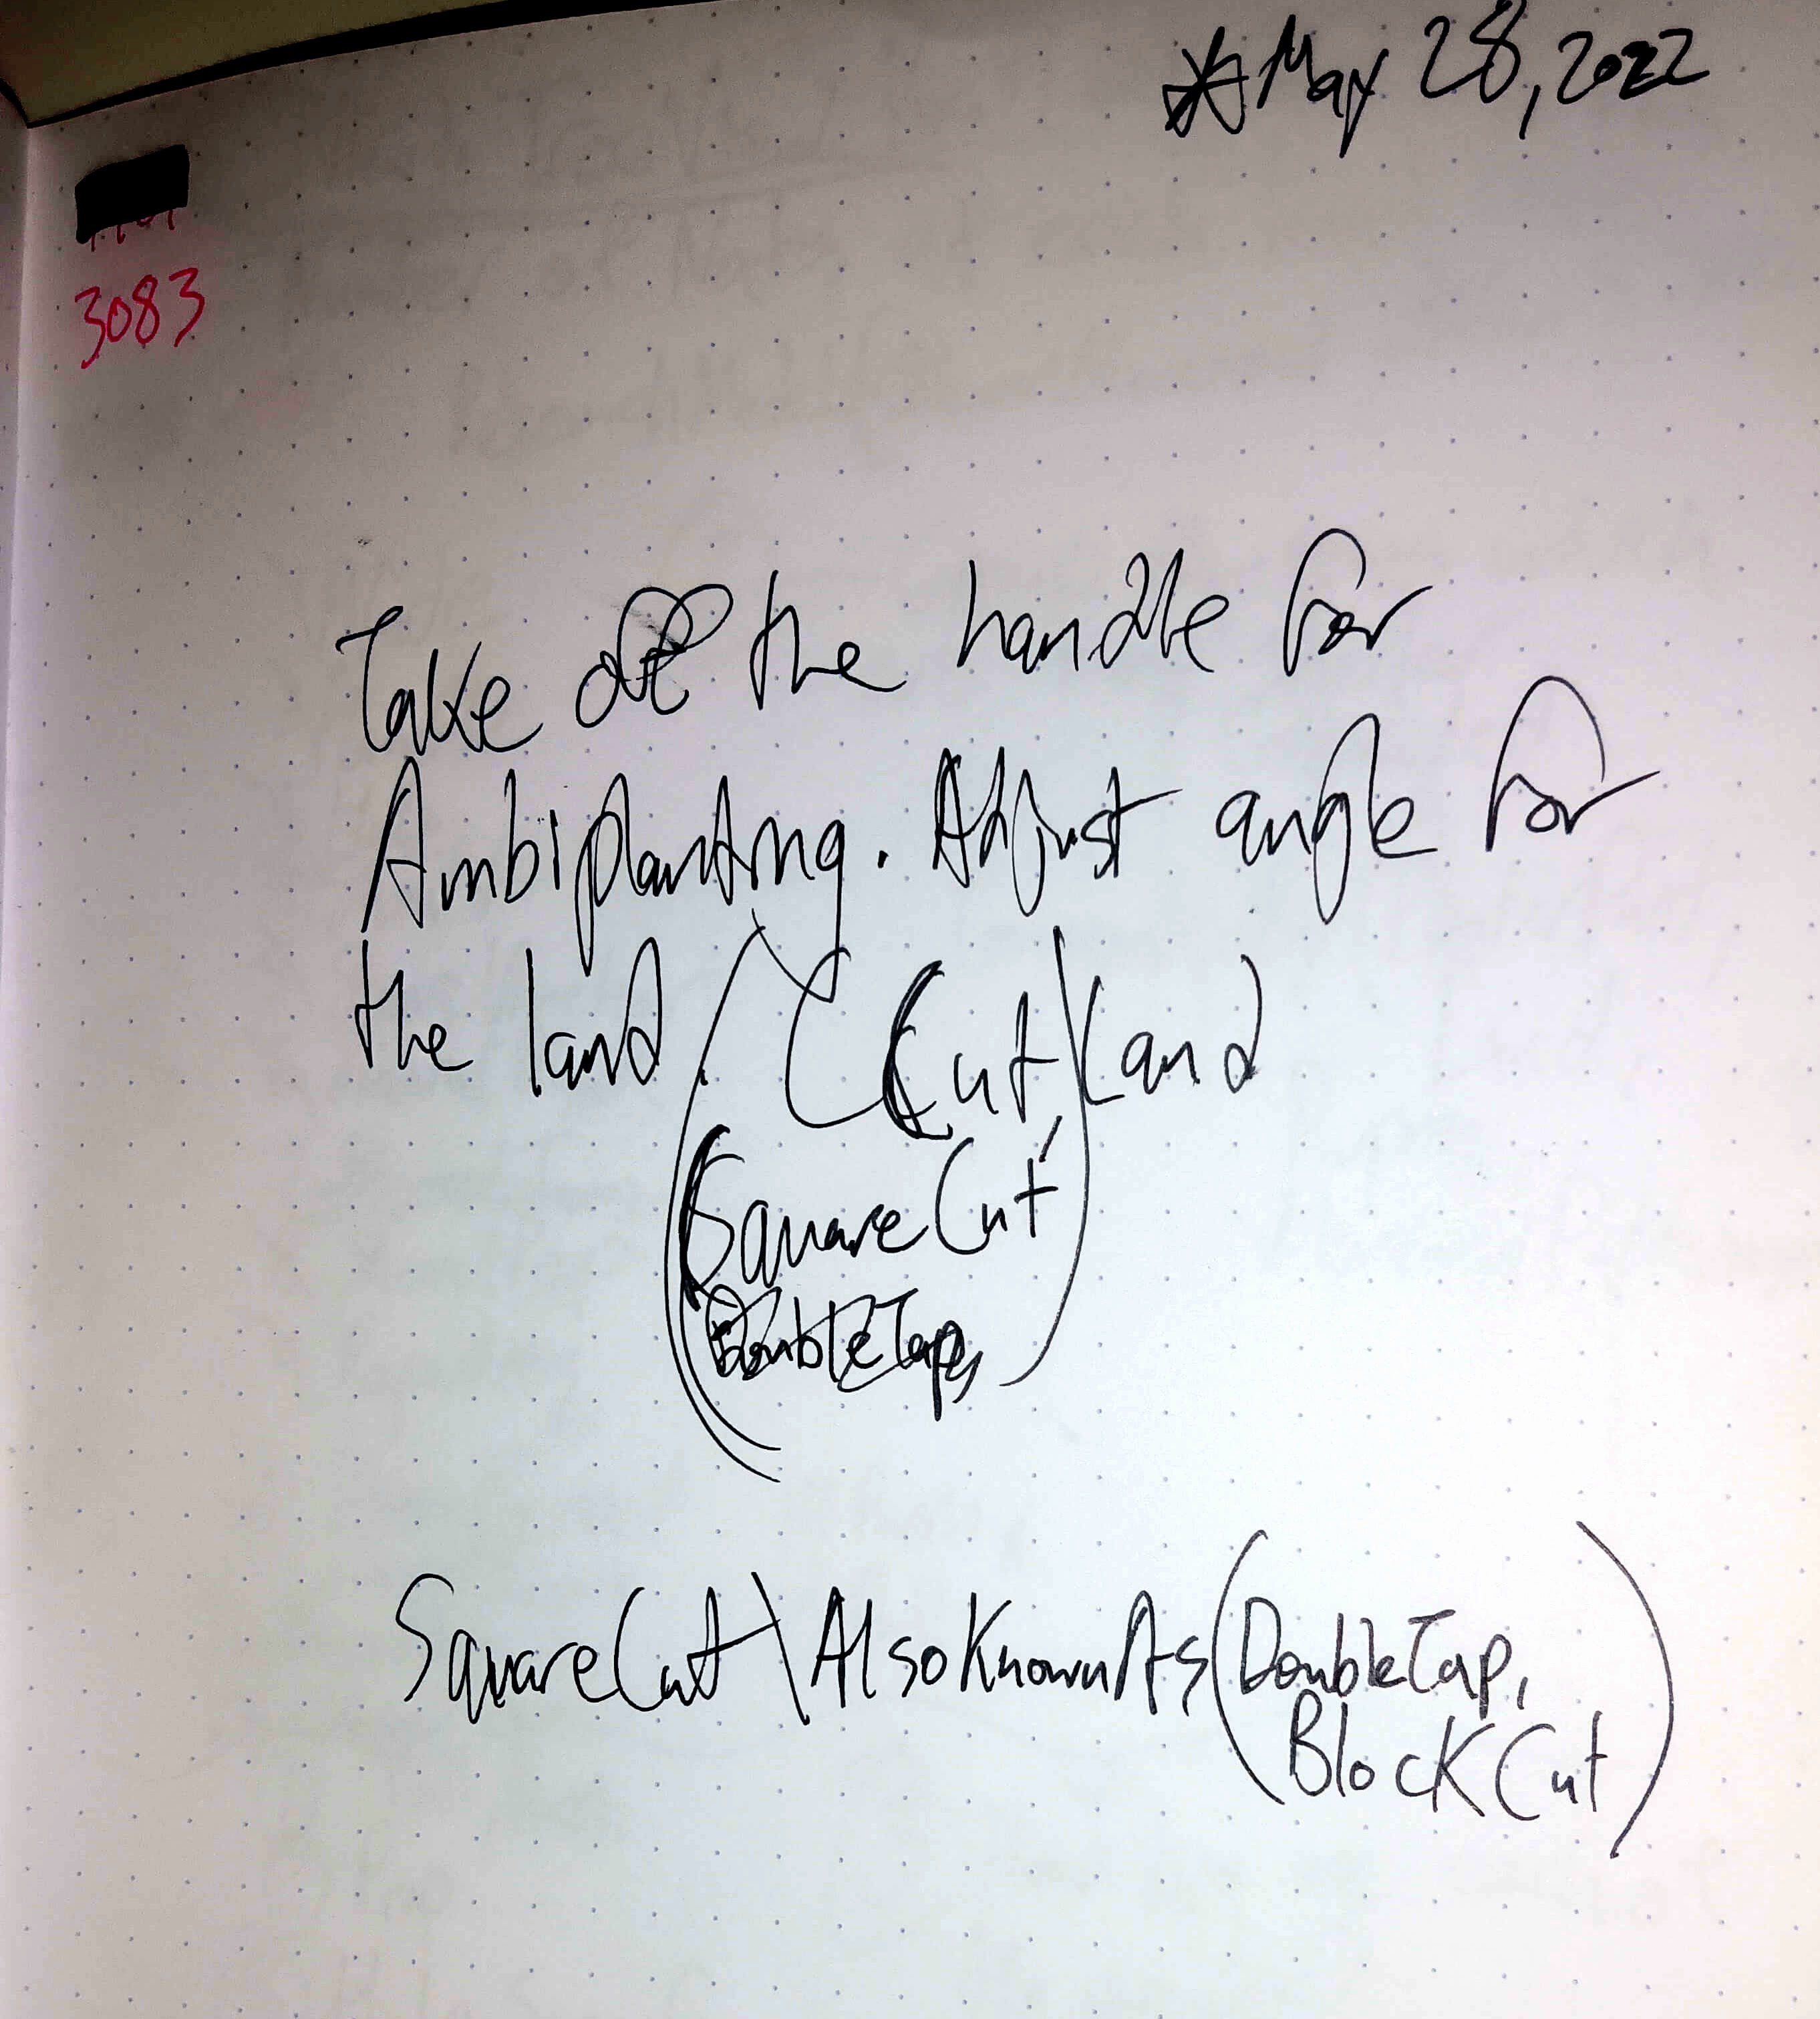 *May 28, 2022
3083
Take off the handle for
Ambiplanting. Adjust angle for
the land (C Cut,)(and)
SquareCut
DoubleTap,
SquareCut\AlsoKnownAs(DoubleTap,
BlockCut)